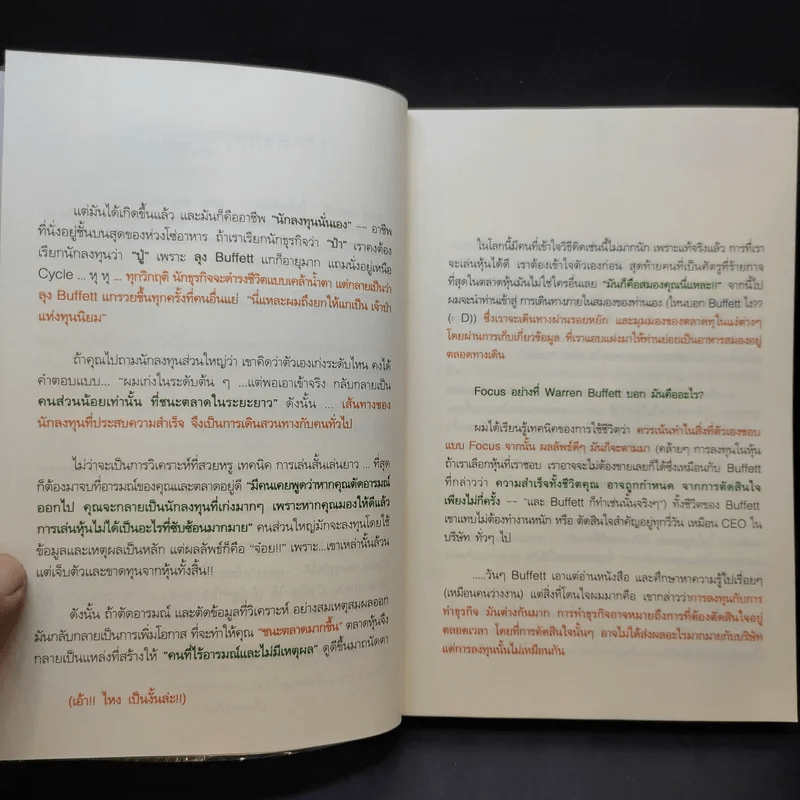 แต่มันได้เกิดขึ้นแล้ว และมันก็คืออาชีพ “นักลงทุนนั่นเอง” -- อาชีพ
ที่นั่งอยู่ชั้นบนสุดของห่วงโซ่อาหาร ถ้าเราเรียกนักธุรกิจว่า “ป๋า” เราคงต้อง
เรียกนักลงทุนว่า “ปู่” เพราะ ลุง Buffett แกก็อายุมาก แถมนั่งอยู่เหนือ
Cycle ... หุ หุ ... ทุกวิกฤติ นักธุรกิจจะดำรงชีวิตแบบเคล้าน้ำตา แต่กลายเป็นว่า
ลุง Buffett แกรวยขึ้นทุกครั้งที่คนอื่นแย่ “นี่แหละผมถึงยกให้แกเป็น เจ้าป๋า
แห่งทุนนิยม”
ถ้าคุณไปถามนักลงทุนส่วนใหญ่ว่า เขาคิดว่าตัวเองเก่งระดับไหน คงได้
คำตอบแบบ... “ผมเก่งในระดับต้น ๆ ...แต่พอเอาเข้าจริง กลับกลายเป็น
คนส่วนน้อยเท่านั้น ที่ชนะตลาดในระยะยาว” ดังนั้น ... เส้นทางของ
นักลงทุนที่ประสบความสำเร็จ จึงเป็นการเดินสวนทางกับคนทั่วไป
ไม่ว่าจะเป็นการวิเคราะห์ที่สวยหรู เทคนิค การเล่นสั้นเล่นยาว ... ที่สุด
ก็ต้องมาจบที่อารมณ์ของคุณและตลาดอยู่ดี “มีคนเคยพูดว่าหากคุณตัดอารมณ์
ออกไป คุณจะกลายเป็นนักลงทุนที่เก่งมากๆ เพราะหากคุณมองให้ดีแล้ว
การเล่นหุ้นไม่ได้เป็นอะไรที่ซับซ้อนมากมาย” คนส่วนใหญ่มักจะลงทุนโดยใช้
ข้อมูลและเหตุผลเป็นหลัก แต่ผลลัพธ์ก็คือ “จ๋อย!!” เพราะ...เขาเหล่านั้นล้วน
แต่เจ็บตัวและขาดทุนจากหุ้นทั้งสิ้น!!
ดังนั้น ถ้าตัดอารมณ์ และตัดข้อมูลที่วิเคราะห์ อย่างสมเหตุสมผลออก
มันกลับกลายเป็นการเพิ่มโอกาส ที่จะทำให้คุณ “ชนะตลาดมากขึ้น” ตลาดหุ้นจึง
กลายเป็นแหล่งที่สร้างให้ “คนที่ไร้อารมณ์และไม่มีเหตุผล” ดูดีขึ้นมาถนัดตา
(เอ้า!! ไหง เป็นงั้นล่ะ!!)
ในโลกนี้มีคนที่เข้าใจวิธีคิดเช่นนี้ไม่มากนัก เพราะแท้จริงแล้ว การที่เรา
จะเล่นหุ้นได้ดี เราต้องเข้าใจตัวเองก่อน สุดท้ายคนที่เป็นศัตรูที่ร้ายกาจ
ที่สุดในตลาดหุ้นมันไม่ใช่ใครอื่นเลย “มันก็คือสมองคุณนี่แหละ!!” จากนี้ไป
ผมจะนำท่านเข้าสู่ การเดินทางภายในสมองของท่านเอง (ไหนบอก Buffett ไง??
(: D)) ซึ่งเราจะเดินทางผ่านรอยหยัก และมุมมองของตลาดหุ้นในแง่ต่างๆ
โดยผ่านการเก็บเกี่ยวข้อมูล ที่เราแอบแฝงมาให้ท่านย่อยเป็นอาหารสมองอยู่
ตลอดทางเดิน
Focus อย่างที่ Warren Buffett บอก มันคืออะไร?
ผมได้เรียนรู้เทคนิคของการใช้ชีวิตว่า ควรเน้นทำในสิ่งที่ตัวเองชอบ
แบบ Focus จากนั้น ผลลัพธ์ดีๆ มันก็จะตามมา (คล้ายๆ การลงทุนในหุ้น
ถ้าเราเลือกหุ้นที่เราชอบ เราอาจจะไม่ต้องขายเลยก็ได้ซึ่งเหมือนกับ Buffett
ที่กล่าวว่า ความสำเร็จทั้งชีวิตคุณ อาจถูกกำหนด จากการตัดสินใจ
เพียงไม่กี่ครั้ง -- “และ Buffett ก็ทำเช่นนั้นจริงๆ”) ทั้งชีวิตของ Buffett
เขาแทบไม่ต้องทำงานหนัก หรือ ตัดสินใจสำคัญอยู่ทุกวี่วัน เหมือน CEO ใน
บริษัท ทั่วๆ ไป
.....วันๆ Buffett เอาแต่อ่านหนังสือ และศึกษาหาความรู้ไปเรื่อยๆ
(เหมือนคนว่างงาน) แต่สิ่งที่โดนใจผมมากคือ เขากล่าวว่าการลงทุนกับการ
ทำธุรกิจ มันต่างกันมาก การทำธุรกิจอาจหมายถึงการที่ต้องตัดสินใจอยู่
ตลอดเวลา โดยที่การตัดสินใจนั้นๆ อาจไม่ได้ส่งผลอะไรมากมายกับบริษัท
แต่การลงทุนนั้นไม่เหมือนกัน